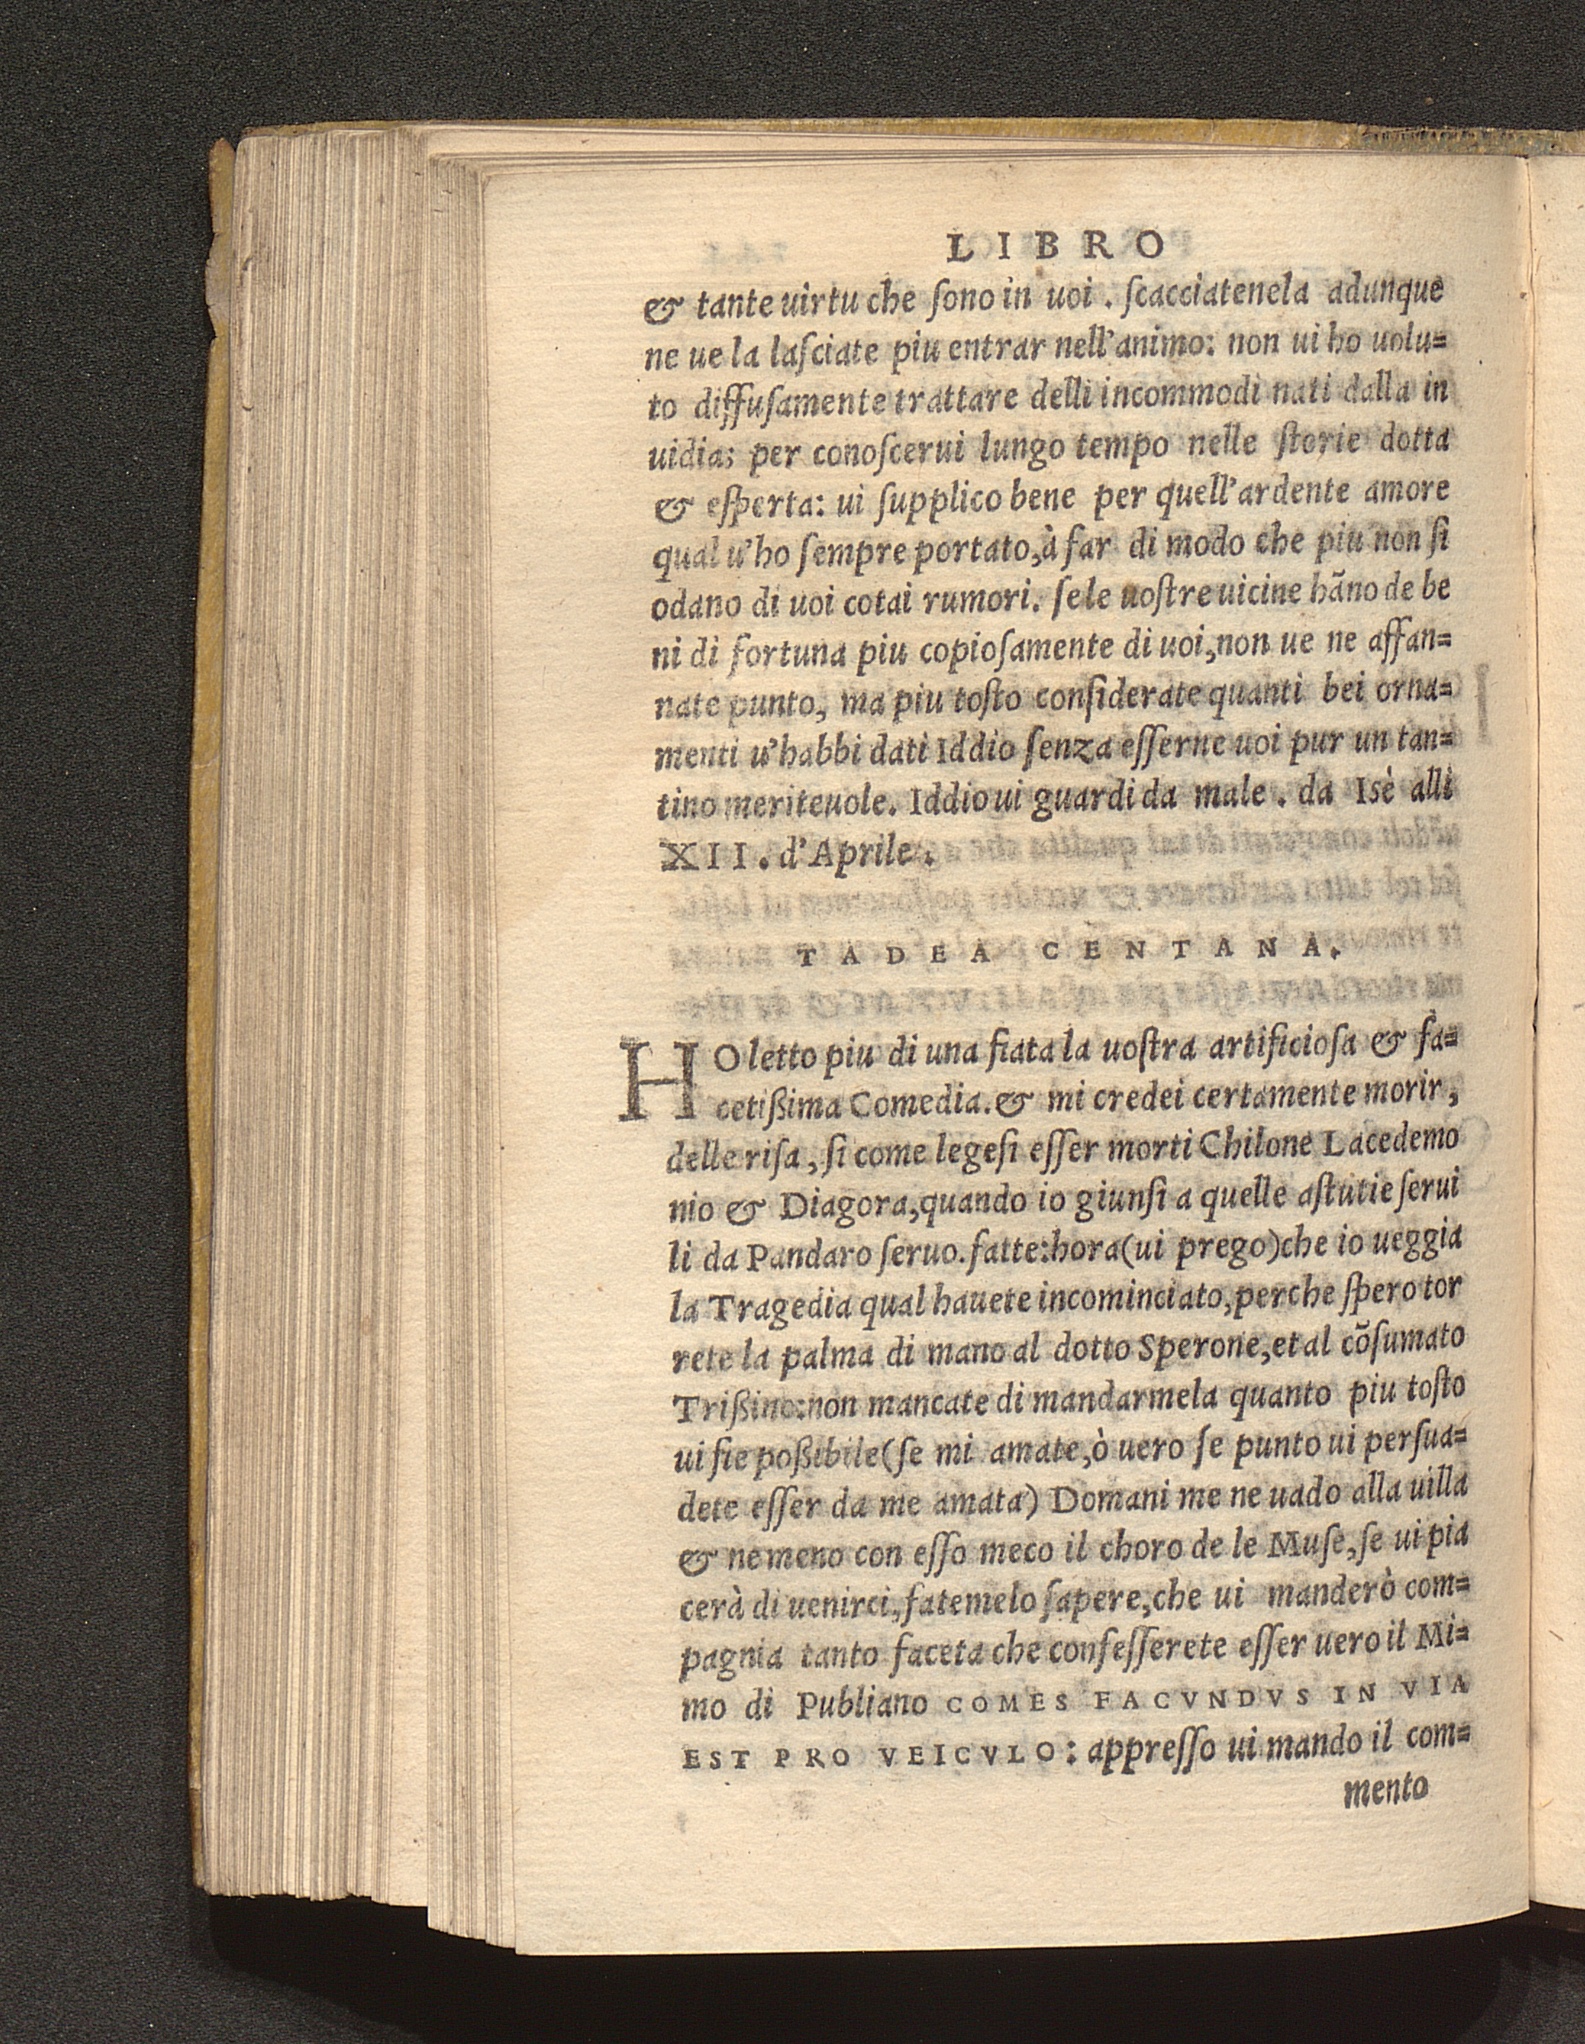 LIBRO
& tante uirtu che ſono in uoi. ſcacciatenela adunque
ne ue la laſciate piu entrar nell'animo: non ui ho uolu=
to diffuſamente trattare delli incommodi nati dalla in
uidia; per conoſcerui lungo tempo nelle ſtorie dotta
& eſperta: ui ſupplico bene per quell'ardente amore
qual u'ho ſempre portato, à far di modo che piu non ſi
odano di uoi cotai rumori. ſe le uoſtre uicine hãno de be
ni di fortuna piu copioſamente di uoi, non ue ne affan=
nate punto, ma piu toſto conſiderate quanti bei orna=
menti u'habbi dati Iddio ſenza eſſerne uoi pur un tan=
tino meriteuole. Iddio ui guardi da male. da Isè alli
XII. d'Aprile.
TADEA CENTANA.
HO letto piu di una fiata la uoſtra artificioſa & fa=
cetißima Comedia. & mi credei certamente morir,
delle riſa, ſi come legeſi eſſer morti Chilone Lacedemo
nio & Diagora, quando io giunſi a quelle aſtutie ſerui
li da Pandaro ſeruo. fatte: hora (ui prego) che io ueggia
la Tragedia qual hauete incominciato, perche ſpero tor
rete la palma di mano al dotto Sperone, et al cõſumato
Trißino: non mancate di mandarmela quanto piu toſto
ui fie poßibile (ſe mi amate, ò uero ſe punto ui perſua=
dete eſſer da me amata) Domani me ne uado alla uilla
& ne meno con eſſo meco il choro de le Muſe, ſe ui pia
cerà di uenirci, fatemelo ſapere, che ui manderò com=
pagnia tanto faceta che confeſſerete eſſer uero il Mi=
mo di Publiano COMES FACVNDVS IN VIA
EST PRO VEICVLO: appreſſo ui mando il com=
mento